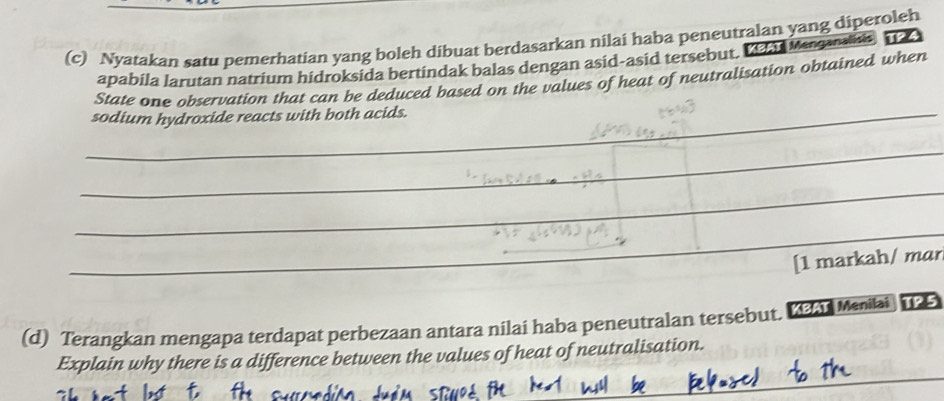 (c) Nyatakan satu pemerhatian yang boleh dibuat berdasarkan nilai haba peneutralan yang diperoleh
apabila larutan natrium hidroksida bertindak balas dengan asid-asid tersebut. KBAT Menganalisis TP 4
State one observation that can be deduced based on the values of heat of neutralisation obtained when
sodium hydroxide reacts with both acids.
[1 markah/ mar
(d) Terangkan mengapa terdapat perbezaan antara nilai haba peneutralan tersebut. KBAT Menilai TP 5
Explain why there is a difference between the values of heat of neutralisation.
heat lost to the during the heat will be released to the